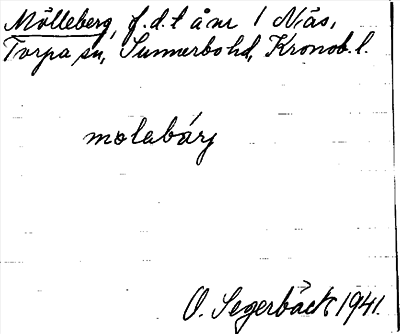 Mölleberg, f.d. l å nr 1 Näs,
Torpa sn, Sunnerbo hd, Kronob. l.
molabárj
O. Segerbäck 1941.